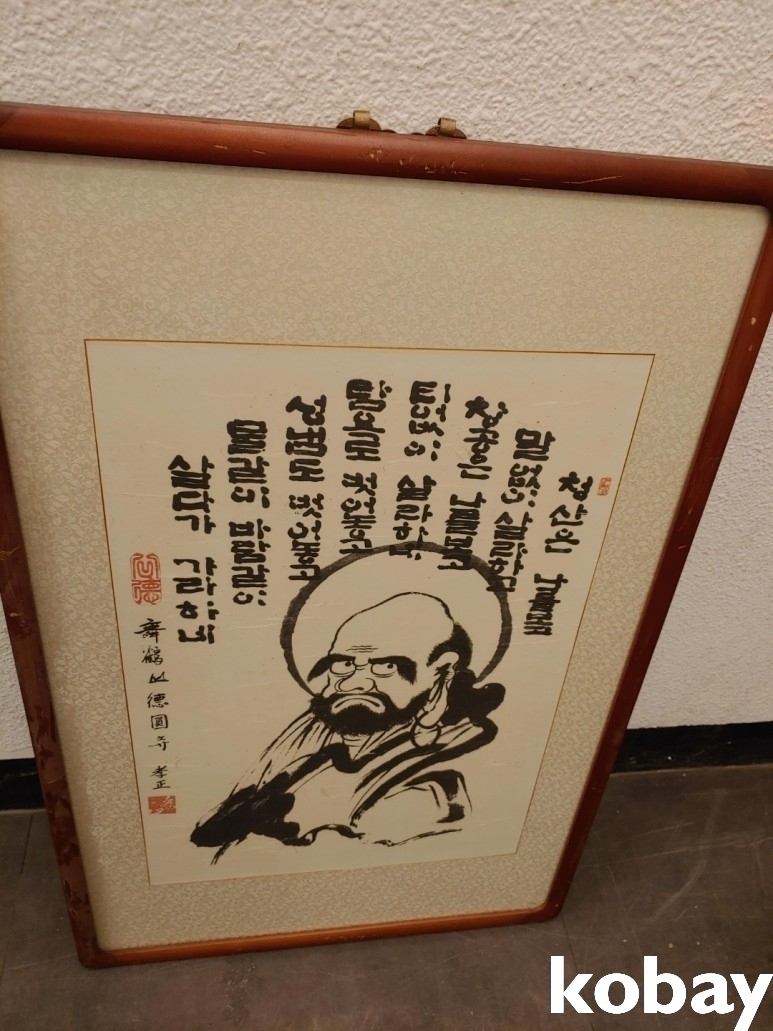 청산은 나를보고
말없이 살라하고
창공은 나를보고
티없이 살라하네
탐욕도 벗어놓고
성냄도 벗어놓고
물같이 바람같이
살다가 가라하네
舞鶴山德圓寺 孝正
kobay